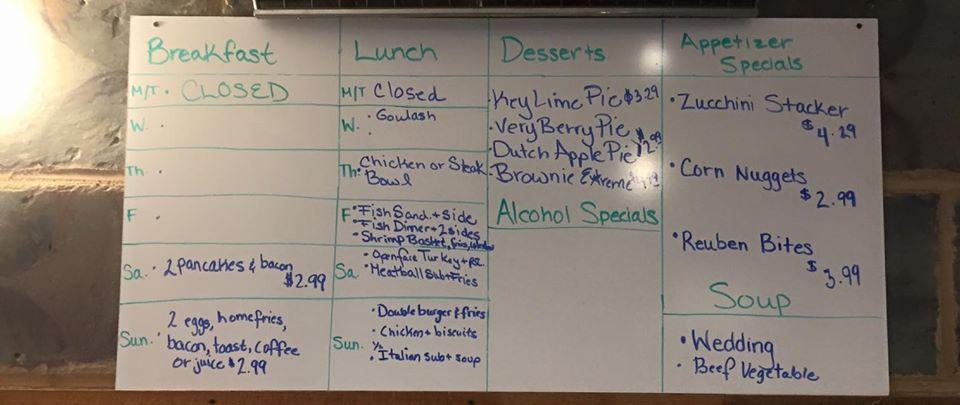 Breakfast
M/T • CLOSED
W. •
Th •
F •
Sa. • 2 pancakes & bacon
$2.99
Sun. • 2 eggs, homefries,
bacon, toast, coffee
or juice $2.99
Lunch
M/T Closed
W. • Goulash
•
Th: Chicken or Steak
Bowl
F • Fish Sand. + side
• Fish Dinner + 2 sides
• Shrimp Basket, fries,
Sa. • Openface Turkey +
• Meatball Sub + Fries
Sun. • Double burger & fries
• Chicken + biscuits
• ½ Italian sub + soup
Desserts
• Key Lime Pie $3.29
• Very Berry Pie
• Dutch Apple Pie
• Brownie Extreme
Alcohol Specials
Appetizer
Specials
• Zucchini Stacker
$4.29
• Corn Nuggets
$2.99
• Reuben Bites
$3.99
Soup
• Wedding
• Beef Vegetable